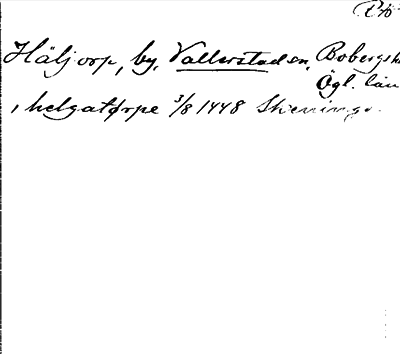 Häljorp, by, Vallerstad sn, Bobergs h
Ögl. län
i helgatørpe 3/8 1448 Skeninge